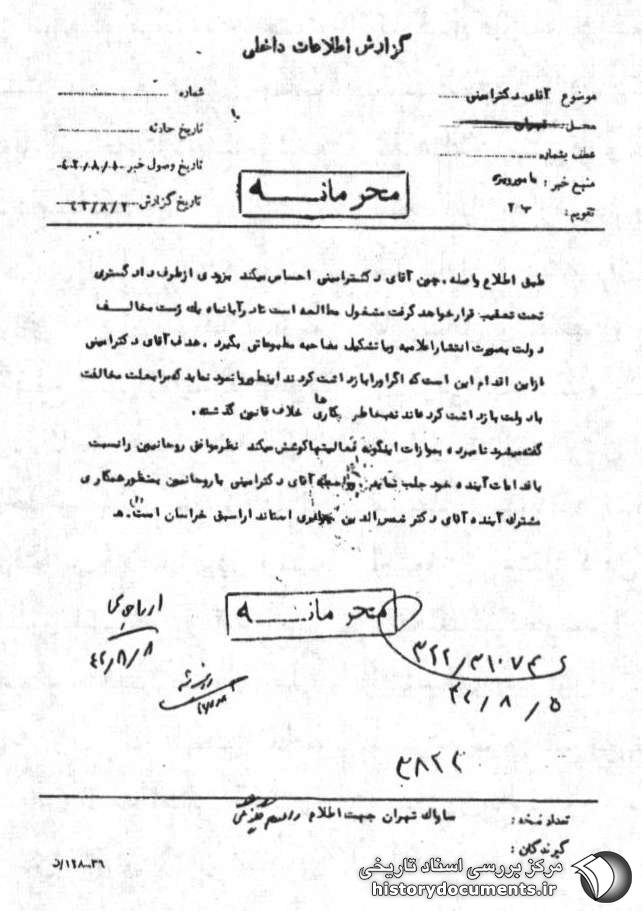 گزارش اطلاعات داخلی
موضوع آقای دکترامینی
محل تهران
عطف بشماره
منبع خبر :
تقویم :
شماره
تاریخ حادثه
تاریخ وصول خبر ۴۲/۸/۱
تاریخ گزارش ۴۲/۸/۲
محرمانه
طبق اطلاع واصله، چون آقای دکترامینی احساس میکند بزودی ازطرف دادگستری
تحت تعقیب قرارخواهد گرفت مشغول مطالعه است تادرآبانماه یك ژست مخالف
دولت بصورت انتشاراعلامیه ویاتشکیل مصاحبه مطبوعاتی بگیرد . هدف آقای دکترامینی
ازاین اقدام این است که اگراورابازداشت کردند اینطوروانمود نماید که مرابعلت مخالفت
بادولت بازداشت کرده‌اند نه‌بخاطر کارهای خلاف قانون گذشته .
گفته‌میشود نامبرده بموازات اینگونه فعالیتهاکوشش میکند نظرموافق روحانیون رانسبت
باقدامات‌آینده خود جلب نماید آقای دکترامینی باروحانیون بمنظورهمکاری
مشترک آینده آقای دکتر شمس‌الدین جزایری استاندارسابق خراسان است . هـ
محرمانه
۴۲/۸/۸
۳۲۲/۳۱۰۷۳
۴۲/۸/۵
تعداد نسخه :
ساواك تهران جهت اطلاع
گیرندگان :
مرکز بررسی اسناد تاریخی
historydocuments.ir